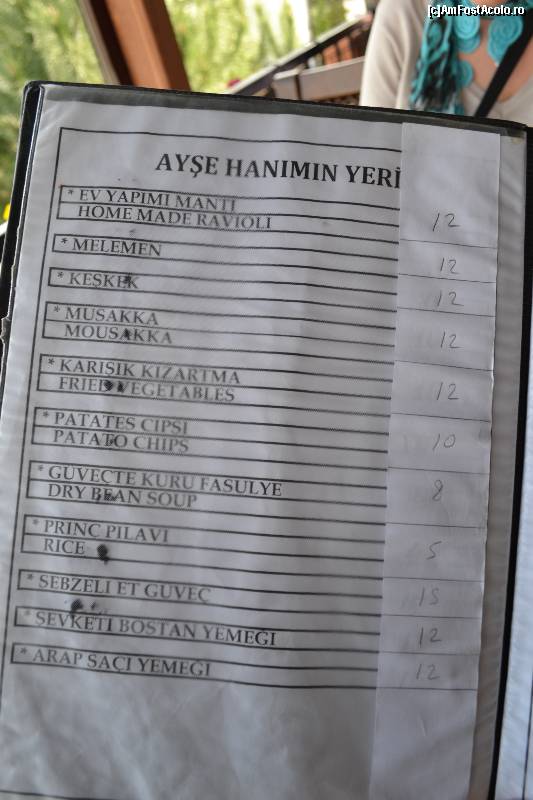 (c)AmFostAcolo.ro
AYŞE HANIMIN YERİ
* EV YAPIMI MANTI
HOME MADE RAVIOLI 12
* MELEMEN 12
* KEŞKEK 12
* MUSAKKA
MOUSAKKA 12
* KARIŞIK KIZARTMA
FRIED VEGETABLES 12
* PATATES CIPSI
PATATO CHIPS 10
* GUVEÇTE KURU FASULYE
DRY BEAN SOUP 8
* PRINÇ PILAVI
RICE 5
* SEBZELI ET GUVEÇ 15
* ŞEVKETI BOSTAN YEMEĞI 12
* ARAP SAÇI YEMEĞI 12